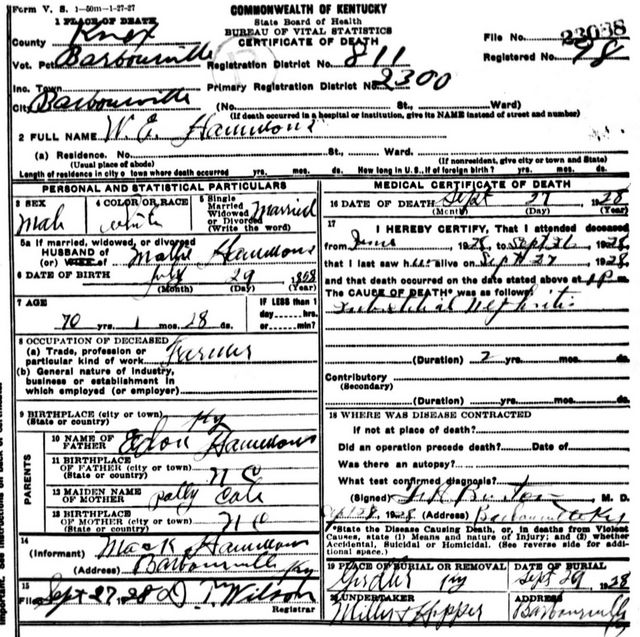 Form V. S. 1-50m-1-27-27
COMMONWEALTH OF KENTUCKY
State Board of Health
BUREAU OF VITAL STATISTICS
CERTIFICATE OF DEATH
1 PLACE OF DEATH
County Knox
Vot. Pct Barbourville
Inc. Town
City Barbourville
File No. 23038
Registered No. 98
Registration District No. 811
Primary Registration District No. 2300
(No. St., Ward)
(If death occurred in a hospital or institution, give its NAME instead of street and number)
2 FULL NAME W. E. Hammons
(a) Residence. No. St., Ward.
(Usual place of abode) (If nonresident, give city or town and State)
Length of residence in city o town where death occurred yrs. mos. ds. How long in U. S., If of foreign birth? yrs. mos. ds.
PERSONAL AND STATISTICAL PARTICULARS
3 SEX
Male
4 COLOR OR RACE
white
5 Single
Married
Widowed
or Divorced
(Write the word)
Married
5a If married, widowed, or divorced
HUSBAND of
(or) WIFE of Hammons
6 DATE OF BIRTH July 29 1858
(Month) (Day) (Year)
7 AGE
70 yrs. 1 mos. 28 ds.
IF LESS than 1
day hrs.
or min?
8 OCCUPATION OF DECEASED
(a) Trade, profession or
particular kind of work Farmer
(b) General nature of industry,
business or establishment in
which employed (or employer)
9 BIRTHPLACE (city or town)
(State or country) Ky
PARENTS
10 NAME OF
FATHER Hammons
11 BIRTHPLACE
OF FATHER (city or town)
(State or country) N C
12 MAIDEN NAME
OF MOTHER Polly Cole
13 BIRTHPLACE
OF MOTHER (city or town)
(State or country) N C
14
(Informant) Mack Hammons
Barbourville Ky
15
Filed Sept 27, 28 Wilson
Registrar
MEDICAL CERTIFICATE OF DEATH
16 DATE OF DEATH Sept 27 1928
(Month) (Day) (Year)
17
I HEREBY CERTIFY, That I attended deceased
from June 1928, to Sept 26, 1928,
that I last saw h alive on Sept 27, 1928,
and that death occurred on the date stated above at 1 P m.
The CAUSE OF DEATH* was as follows:
Interstitial Nephritis
(Duration) 2 yrs. mos. ds.
Contributory
(Secondary)
(Duration) yrs. mos. ds.
18 WHERE WAS DISEASE CONTRACTED
If not at place of death?
Did an operation precede death? Date of
Was there an autopsy?
What test confirmed diagnosis?
(Signed) M. D.
Sept 28, 1928 (Address) Barbourville Ky
*State the Disease Causing Death, or, in deaths from Violent
Causes, state (1) Means and nature of Injury; and (2) whether
Accidental, Suicidal or Homicidal. (See reverse side for addi-
tional space.)
19 PLACE OF BURIAL OR REMOVAL
Girdler Ky
DATE OF BURIAL
Sept 29 1928
20 UNDERTAKER
Miller & Hopper
ADDRESS
Barbourville
Ky